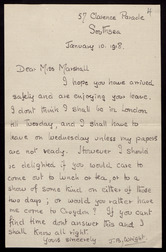 4
57 Clarence Parade
Southsea
January 10. 1918.
Dear Miss Marshall
I hope you have arrived
safely and are enjoying your leave.
I don't think I shall be in London
till Tuesday, and I shall have to
leave on Wednesday unless my papers
are not ready. However I should
be delighted if you would care to
come out to lunch or tea, or to a
show of some kind on either of those
two days; or would you rather have
me come to Croydon? If you can't
find time don't answer this and I
shall know all right.
Yours sincerely